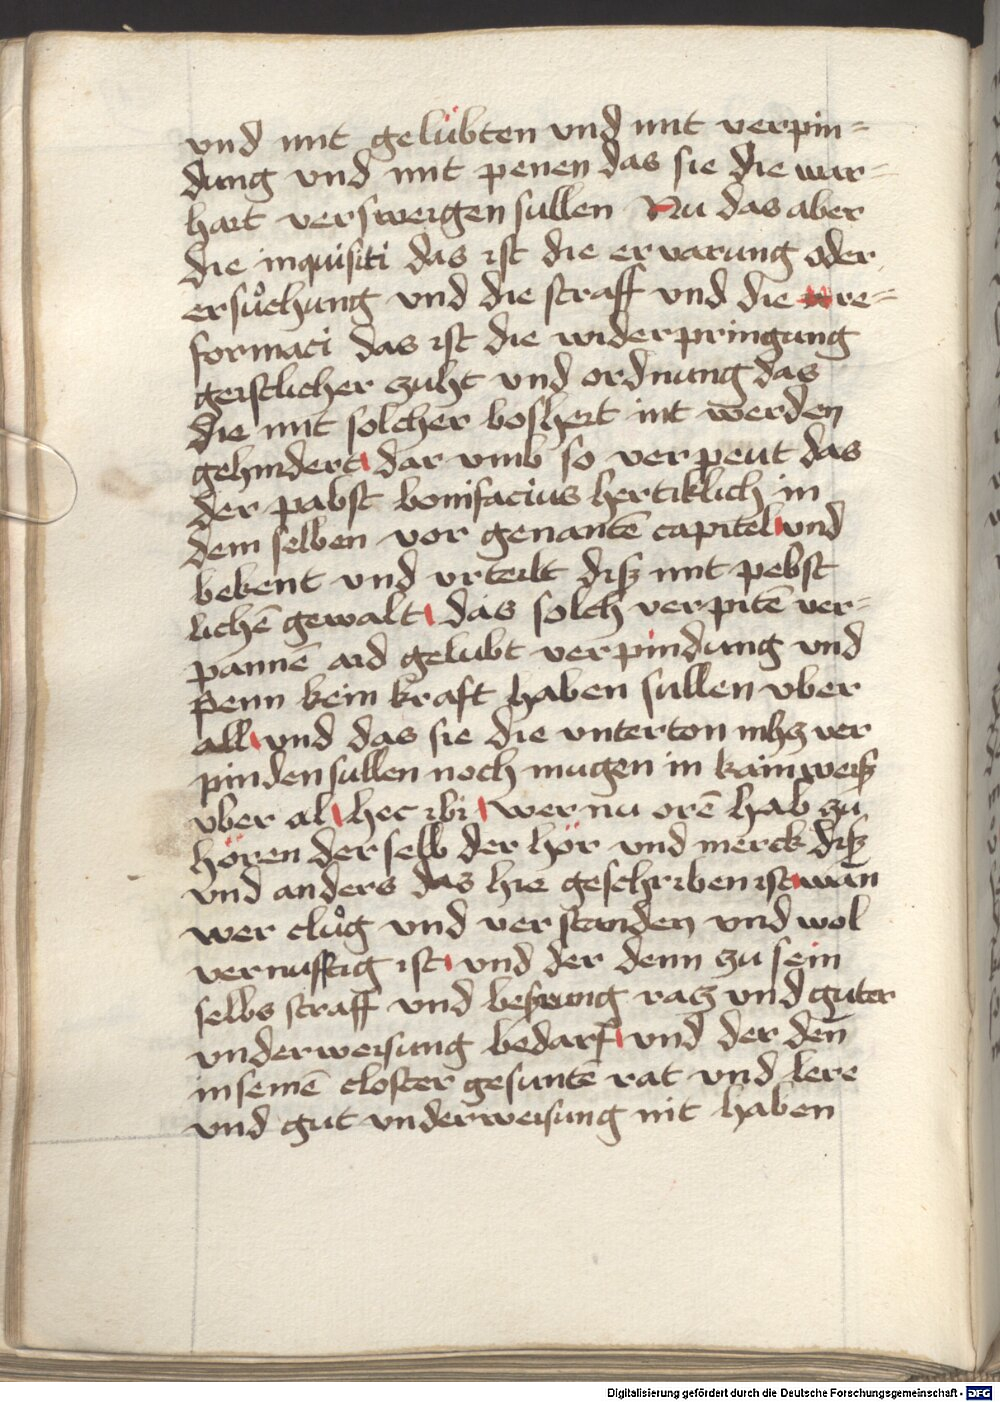 vnd mit gelübten vnd mit verpin=
dung vnd mit penen das sie die war=
hait versweigen sullen Nu das aber
die inquisiti das ist die ervarung oder
ersůchung vnd die straff vnd die re=
formaci das ist die widerpringung
geistlicher zuht vnd ordnung das
die mit solcher bosheit nit werden
gehindert dar vmb so verpeut das
der pabst bonifacius hertiklich in
dem selben vor genantē capitel vnd
bekent vnd vrteilt diß mit pebst
lichē gewalt das solch verpitē ver=
pannē aid gelubt verpindung vnd
penn kein kraft haben sullen vber
all vnd das sie die vnterton nihz ver
pinden sullen noch mugen in kain weiß
vber al hec ibi wer nu orē hab zu
hören der selb der hör vnd merck diß
vnd anders das hie geschriben ist wan̄
wer clůg vnd verstanden vnd wol
vernufftig ist vnd der denn zu sein
selbs straff vnd beßrung ratz vnd guter
vnderweisung bedarf vnd der den̄
in seinē closter gesuntē rat vnd lere
vnd gut vnderweisung nit haben
Digitalisierung gefördert durch die Deutsche Forschungsgemeinschaft - DFG